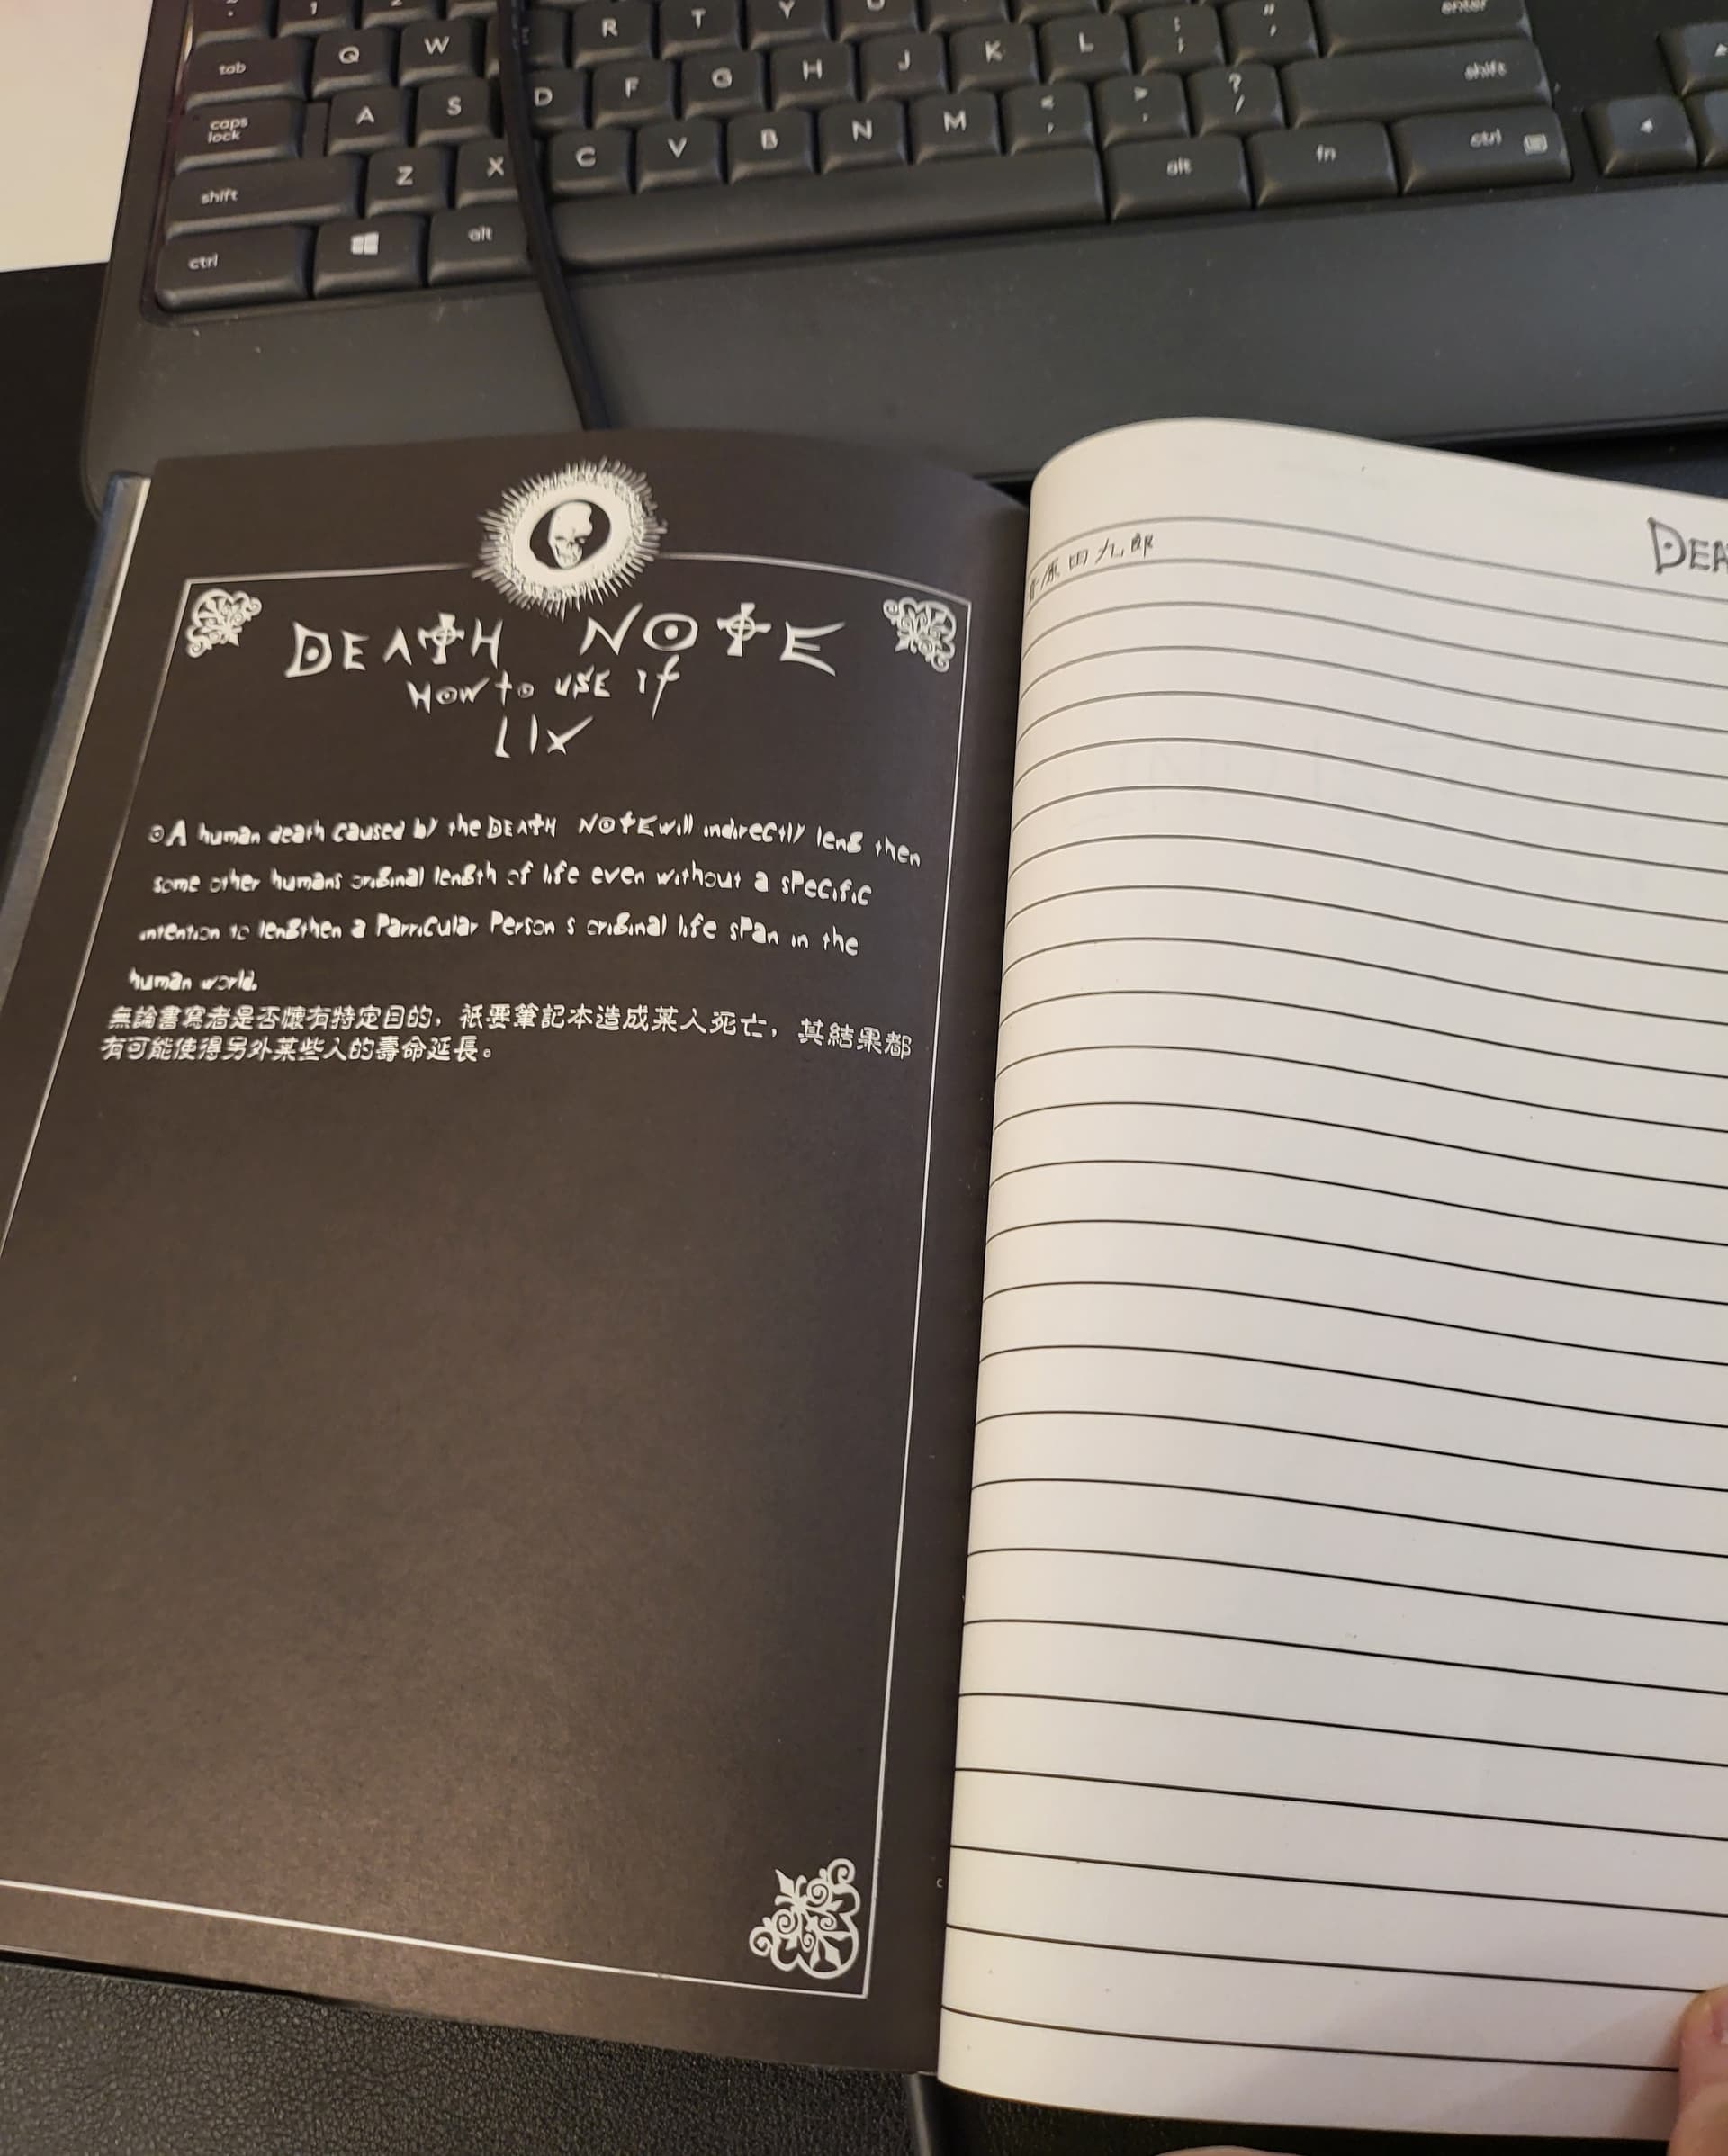 tab
Q
W
R
T
Y
caps
lock
A
S
D
F
G
H
J
K
L
;
enter
shift
Z
X
C
V
B
N
M
<
,
>
.
?
/
shift
ctrl
alt
alt
fn
ctrl
DEATH NOTE
HOW to USE It
LIX
A human death caused by the DEATH NOTE will indirectly leng then
some other humans original length of life even without a specific
intention to lengthen a Particular Person s original life span in the
human world.
無論書寫者是否懷有特定目的，祇要筆記本造成某人死亡，其結果都
有可能使得另外某些人的壽命延長。
原田九郎
DEA